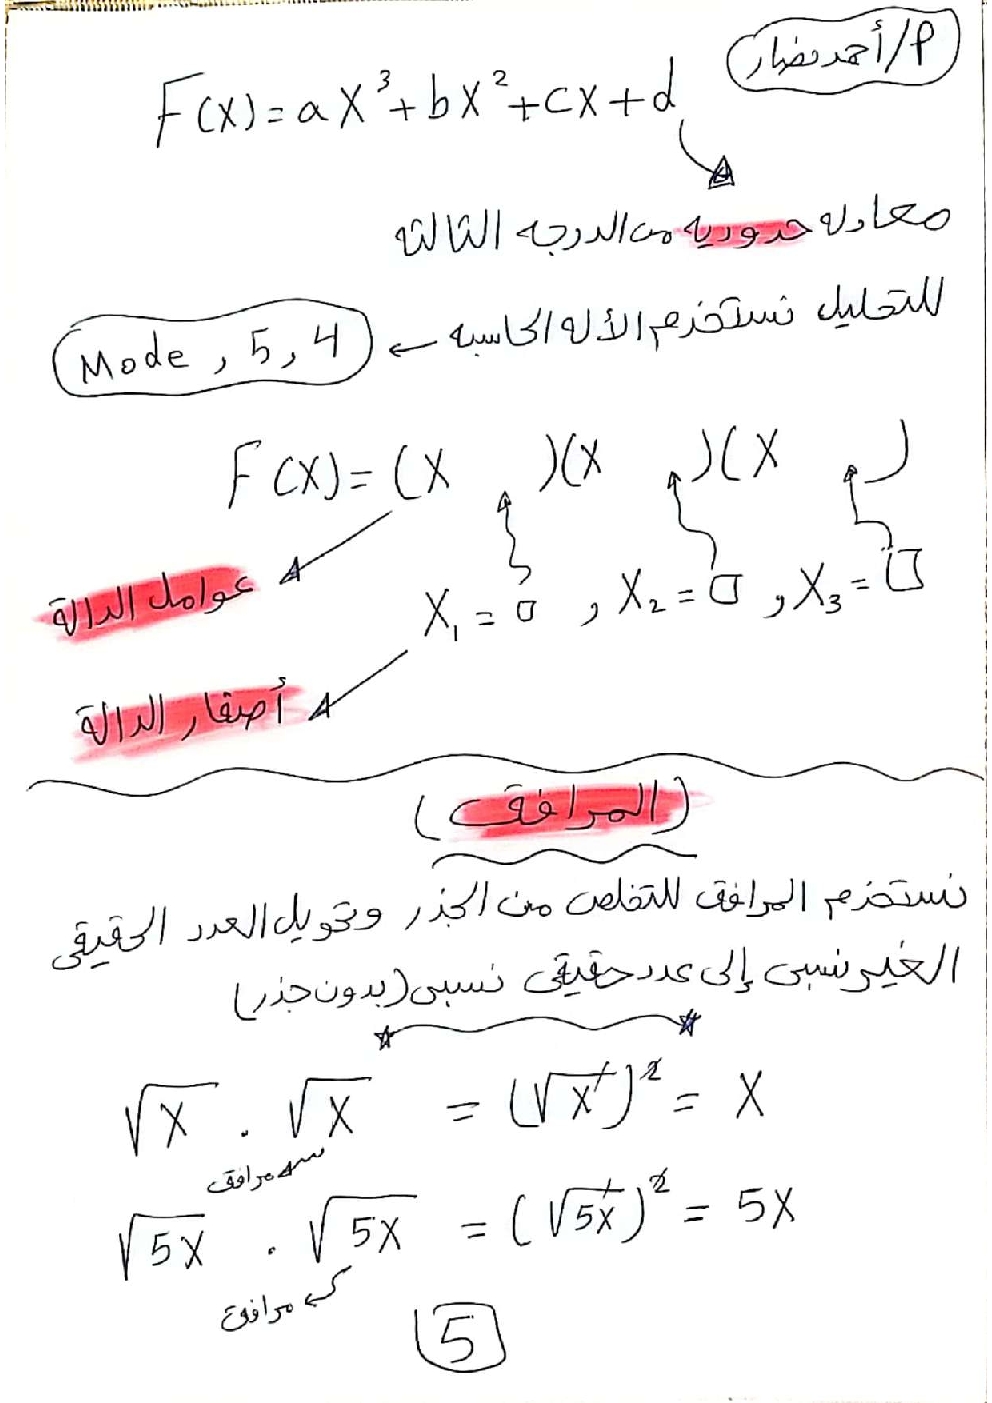 م/أحمد نصار
F(x) = ax³ + bx² + cx + d
معادله حدوديه من الدرجه الثالثه
للتحليل نستخدم الأله الحاسبه ← Mode , 5 , 4
F(x) = (x )(x )(x )
عوامل الدالة
x₁ = □ , x₂ = □ , x₃ = □
أصفار الدالة
(المرافق)
نستخدم المرافق للتخلص من الجذر وتحويل العدد الحقيقى
الغير نسبى إلى عدد حقيقى نسبى (بدون جذر)
√x . √x = (√x)² = x
مرافق
√5x . √5x = (√5x)² = 5x
مرافق
5